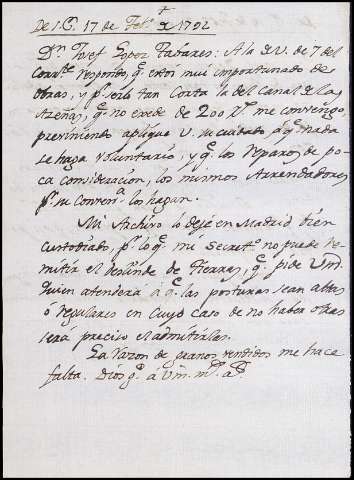 De S.C. 17 de Feb.º de 1792
Dn. Josef Lopez Tabares: A la de V. de 7 del
corr.te respondo, q.e estoi mui importunado de
obras, y p.r serlo tan corta la del Canal de las
Azeñas, q.e no excede de 200 r.s me convengo,
previniendo aplique V. su cuidado a q.e nada
se haga voluntario, y q.e los reparos de po-
ca consideracion, los mismos Arrendadores
p.r su conven.a los hagan.
Mi Archivo lo dejé en Madrid bien
custodiado, p.r lo q.e mi Secret.º no puede re-
mitir el deslinde de Tierras, q.e pide Vmd.
quien atenderá á q.e las posturas sean altas
o regulares en cuyo caso de no haber otras
será preciso el admitirlas.
La razon de granos vendidos me hace
falta. Dios g.e á Vm. m.s a.s